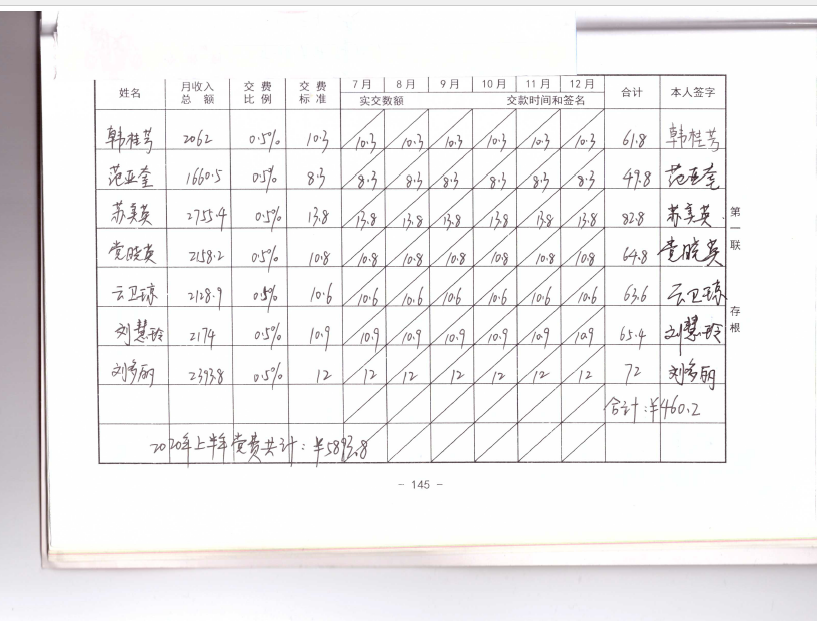 姓名 月收入总额 交费比例 交费标准 7月 8月 9月 10月 11月 12月 合计 本人签字
实交数额 交款时间和签名
韩桂芳 2062 0.5% 10.3 10.3 10.3 10.3 10.3 10.3 10.3 61.8 韩桂芳
范亚奎 1660.5 0.5% 8.3 8.3 8.3 8.3 8.3 8.3 8.3 49.8 范亚奎
苏美英 2755.4 0.5% 13.8 13.8 13.8 13.8 13.8 13.8 13.8 82.8 苏美英
党晓英 2158.2 0.5% 10.8 10.8 10.8 10.8 10.8 10.8 10.8 64.8 党晓英
云卫琼 2128.9 0.5% 10.6 10.6 10.6 10.6 10.6 10.6 10.6 63.6 云卫琼
刘慧玲 2174 0.5% 10.9 10.9 10.9 10.9 10.9 10.9 10.9 65.4 刘慧玲
刘多丽 2393.8 0.5% 12 12 12 12 12 12 12 72 刘多丽
合计:¥460.2
2020年上半年党费共计:¥5893.8
第一联 存根
- 145 -